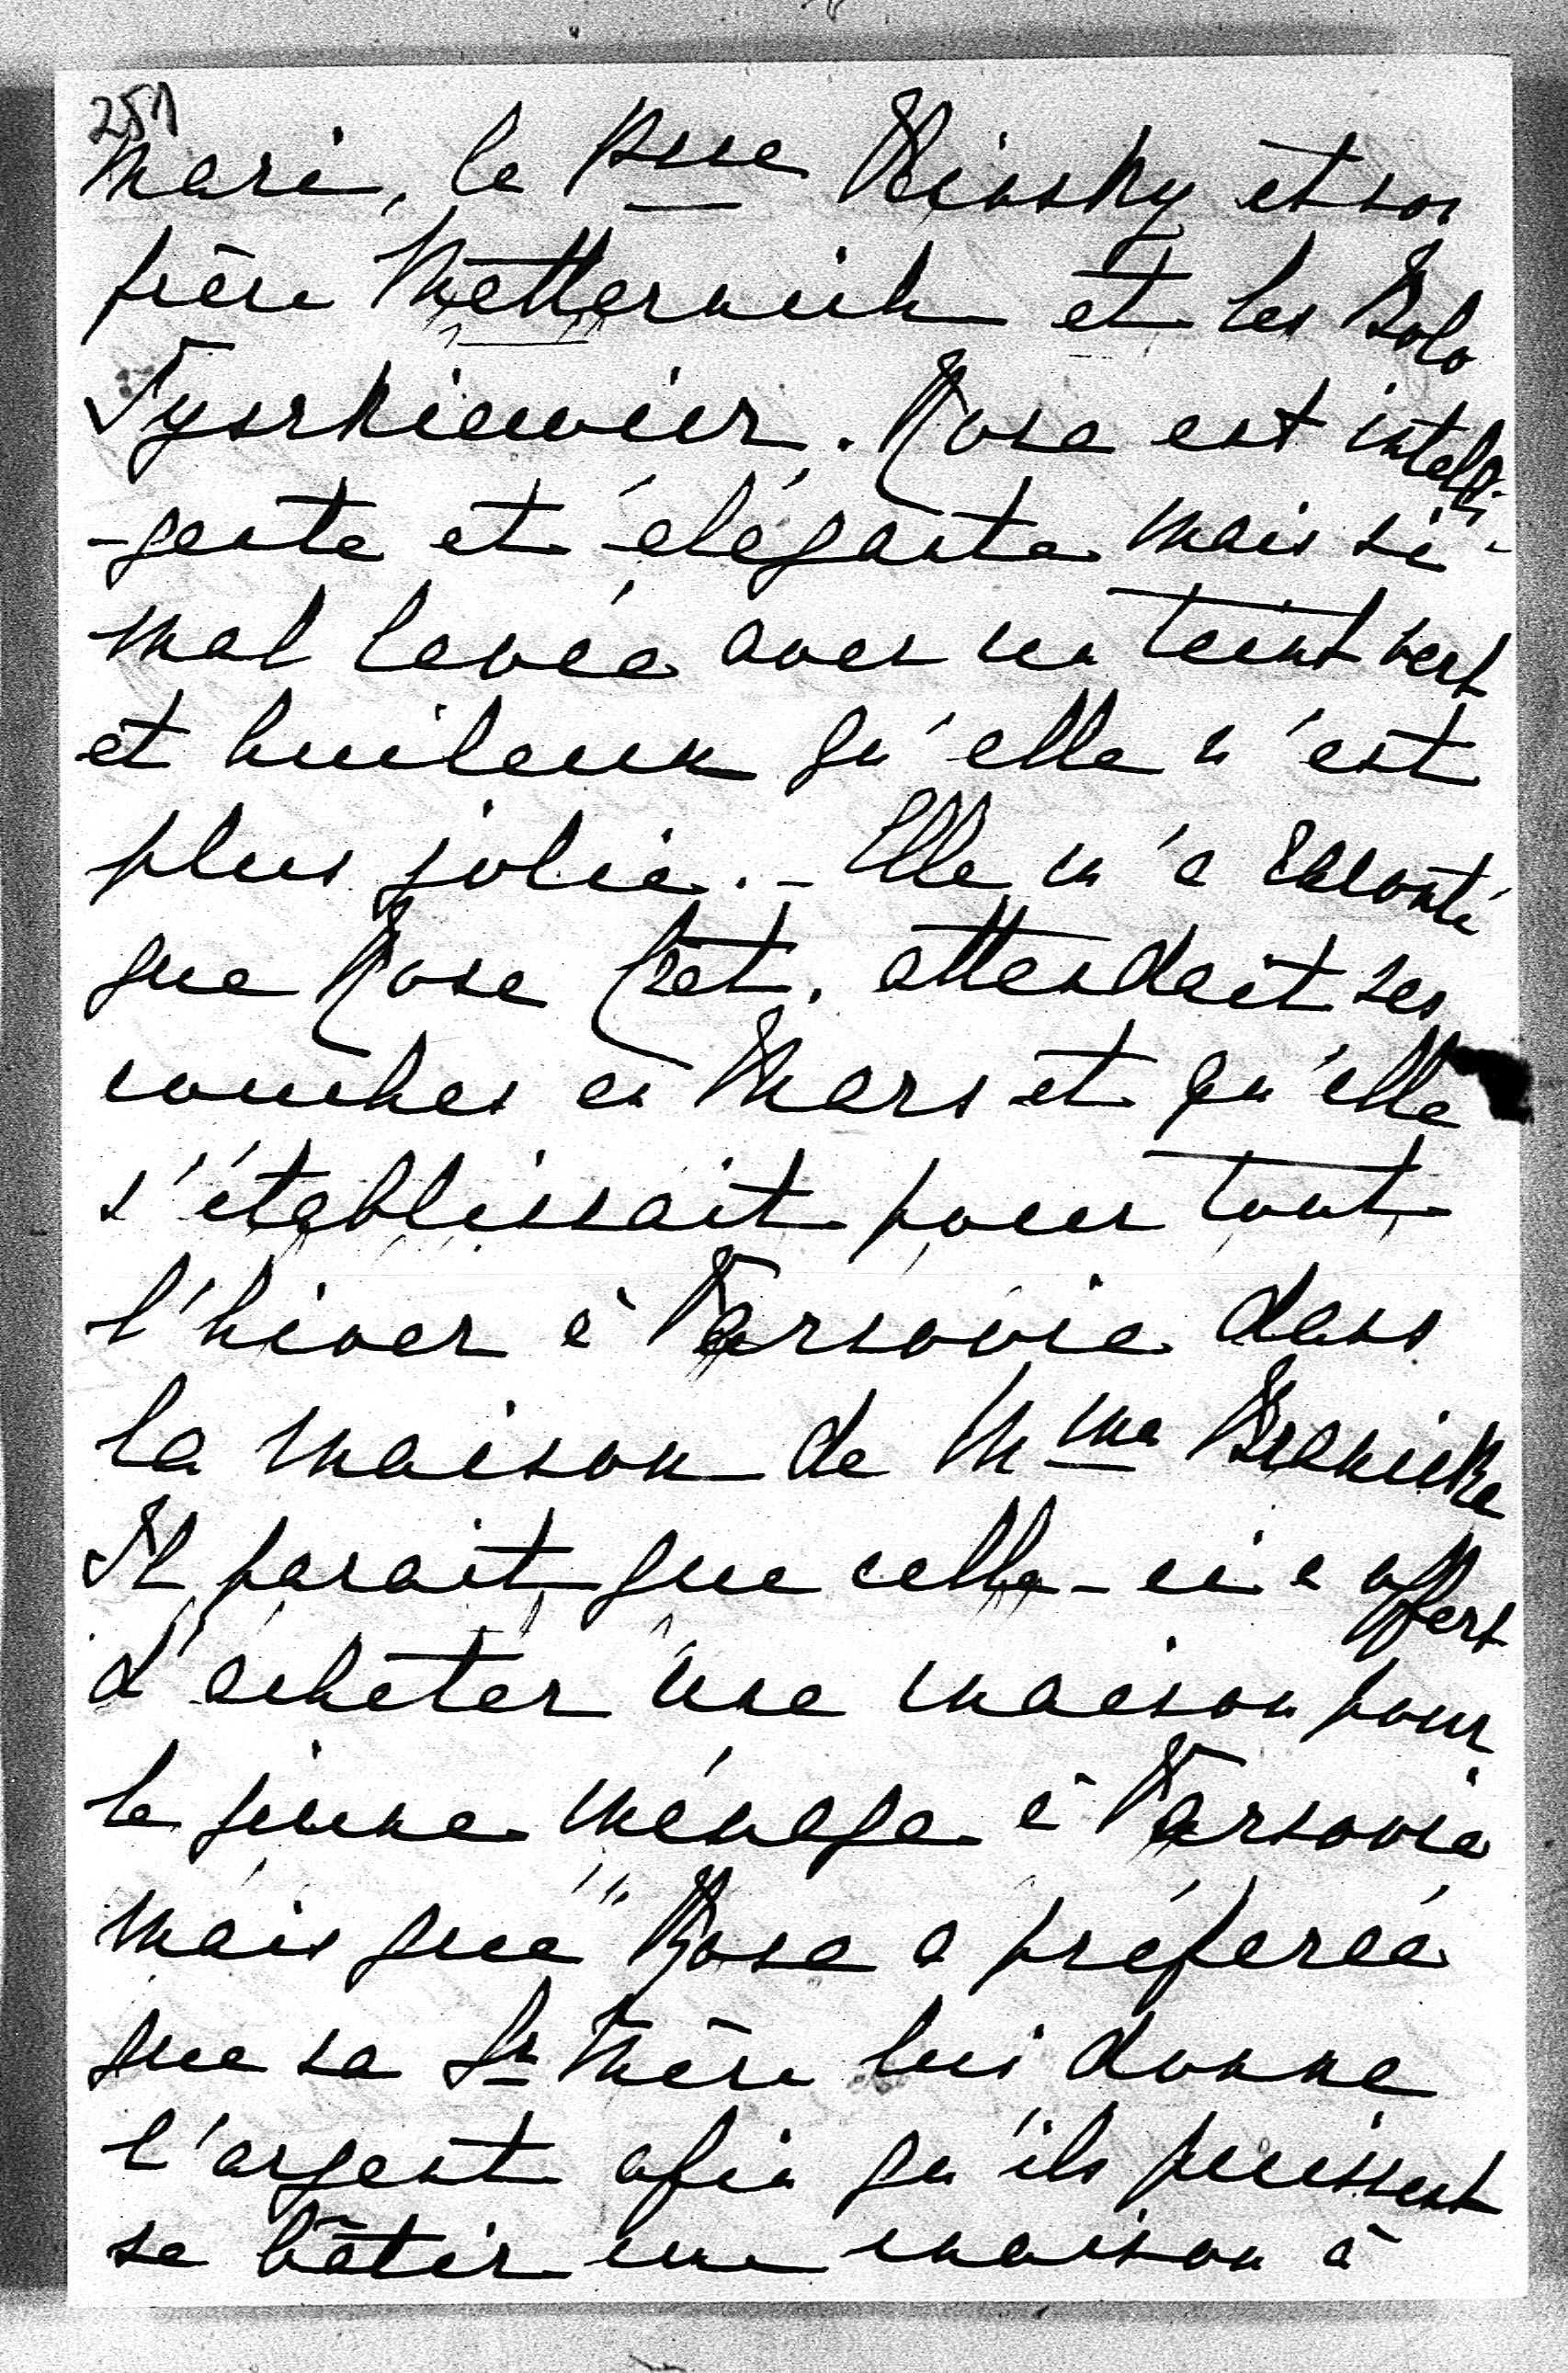 251
mari, la Psse Kinsky et son
frère Metternich et les Bolo
Tyszkiewicz. Rose est intelli-
-gente et élégante mais si
mal lavée avec un teint vert
et huileux qu'elle n'est
plus jolie. - Elle m'a raconté
que Rose Bet. attendait ses
couches en Mars et qu'elle
s'établissait pour tout
l'hiver à Varsovie dans
la maison de Mme Branicka
Il parait que celle-ci a offert
d'acheter une maison pour
le jeune ménage à Varsovie
mais que Rose a préférée
que sa Gr Mère lui donne
l'argent afin qu'ils puissent
se bâtir une maison à